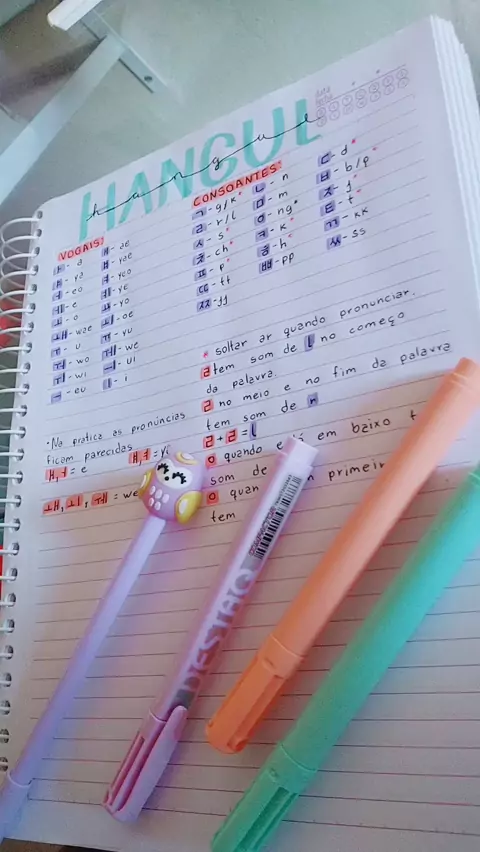 data
fecha
HANGUL
hangul
VOGAIS:
ㅏ - a ㅐ - ae
ㅑ - ya ㅒ - yae
ㅓ - eo ㅕ - yeo
ㅔ - e ㅖ - yeo
ㅗ - o ㅛ - yo
ㅙ - wae ㅚ - oe
ㅜ - u ㅠ - yu
ㅝ - wo ㅞ - we
ㅟ - wi ㅢ - ui
ㅡ - eu ㅣ - i
CONSOANTES:
ㄱ - g/k* ㄴ - n ㄷ - d*
ㄹ - r/l ㅁ - m ㅂ - b/p*
ㅅ - s* ㅇ - ng* ㅈ - j*
ㅊ - ch* ㅋ - k* ㅌ - t*
ㅍ - p* ㅎ - h* ㄲ - kk
ㄸ - tt ㅃ - pp ㅆ - ss
ㅉ - jj
* soltar ar quando pronunciar.
ㄹ tem som de l no começo
da palavra.
ㄹ no meio e no fim da palavra
tem som de r
ㄹ + ㄹ = l
ㅇ quando está em baixo t
som de
ㅇ quan primeir
tem
• Na pratica as pronúncias
ficam parecidas
ㅐ, ㅔ = e ㅒ, ㅖ = y
ㅙ, ㅚ, ㅞ = we
DESTAQ